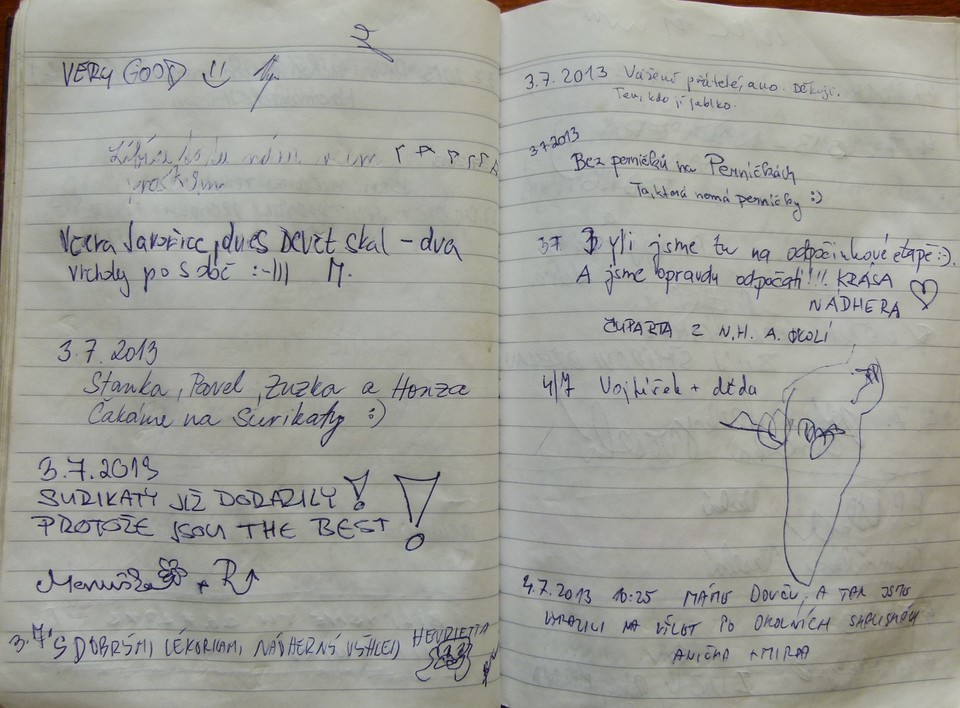 VERY GOOD
prostě jim
Včera Javořice, dnes Devět skal – dva
vrcholy po sobě :-))) M.
3.7.2013
Stanka, Pavel, Zuzka a Honza
Čakáme na Surikaty :)
3.7.2013
SURIKATY JIŽ DORAZILY!
PROTOŽE JSOU THE BEST!
+ R
3.7. S DOBRÝMI LÉKORKAMI, NÁDHERNÝ VÝHLED HENRIETTA
3.7.2013 Vážení přátelé, ano. Děkuji.
Ten, kdo jí jablko.
3.7.2013
Bez perníčků na Perníčkách
Ta, která nemá perníčky :)
3.7 Byli jsme tu na odpočinkové etapě :-).
A jsme opravdu odpočatí!!! KRÁSA
NÁDHERA
ČUPARTA Z N.H. A OKOLÍ
4/7 Vojtíšek + děda
4.7.2013 10:25 MÁME DOVČU, A TAK JSME
VYRAZILI NA VÝLET PO OKOLNÍCH SKALISKÁCH
ANIČKA + MIRA